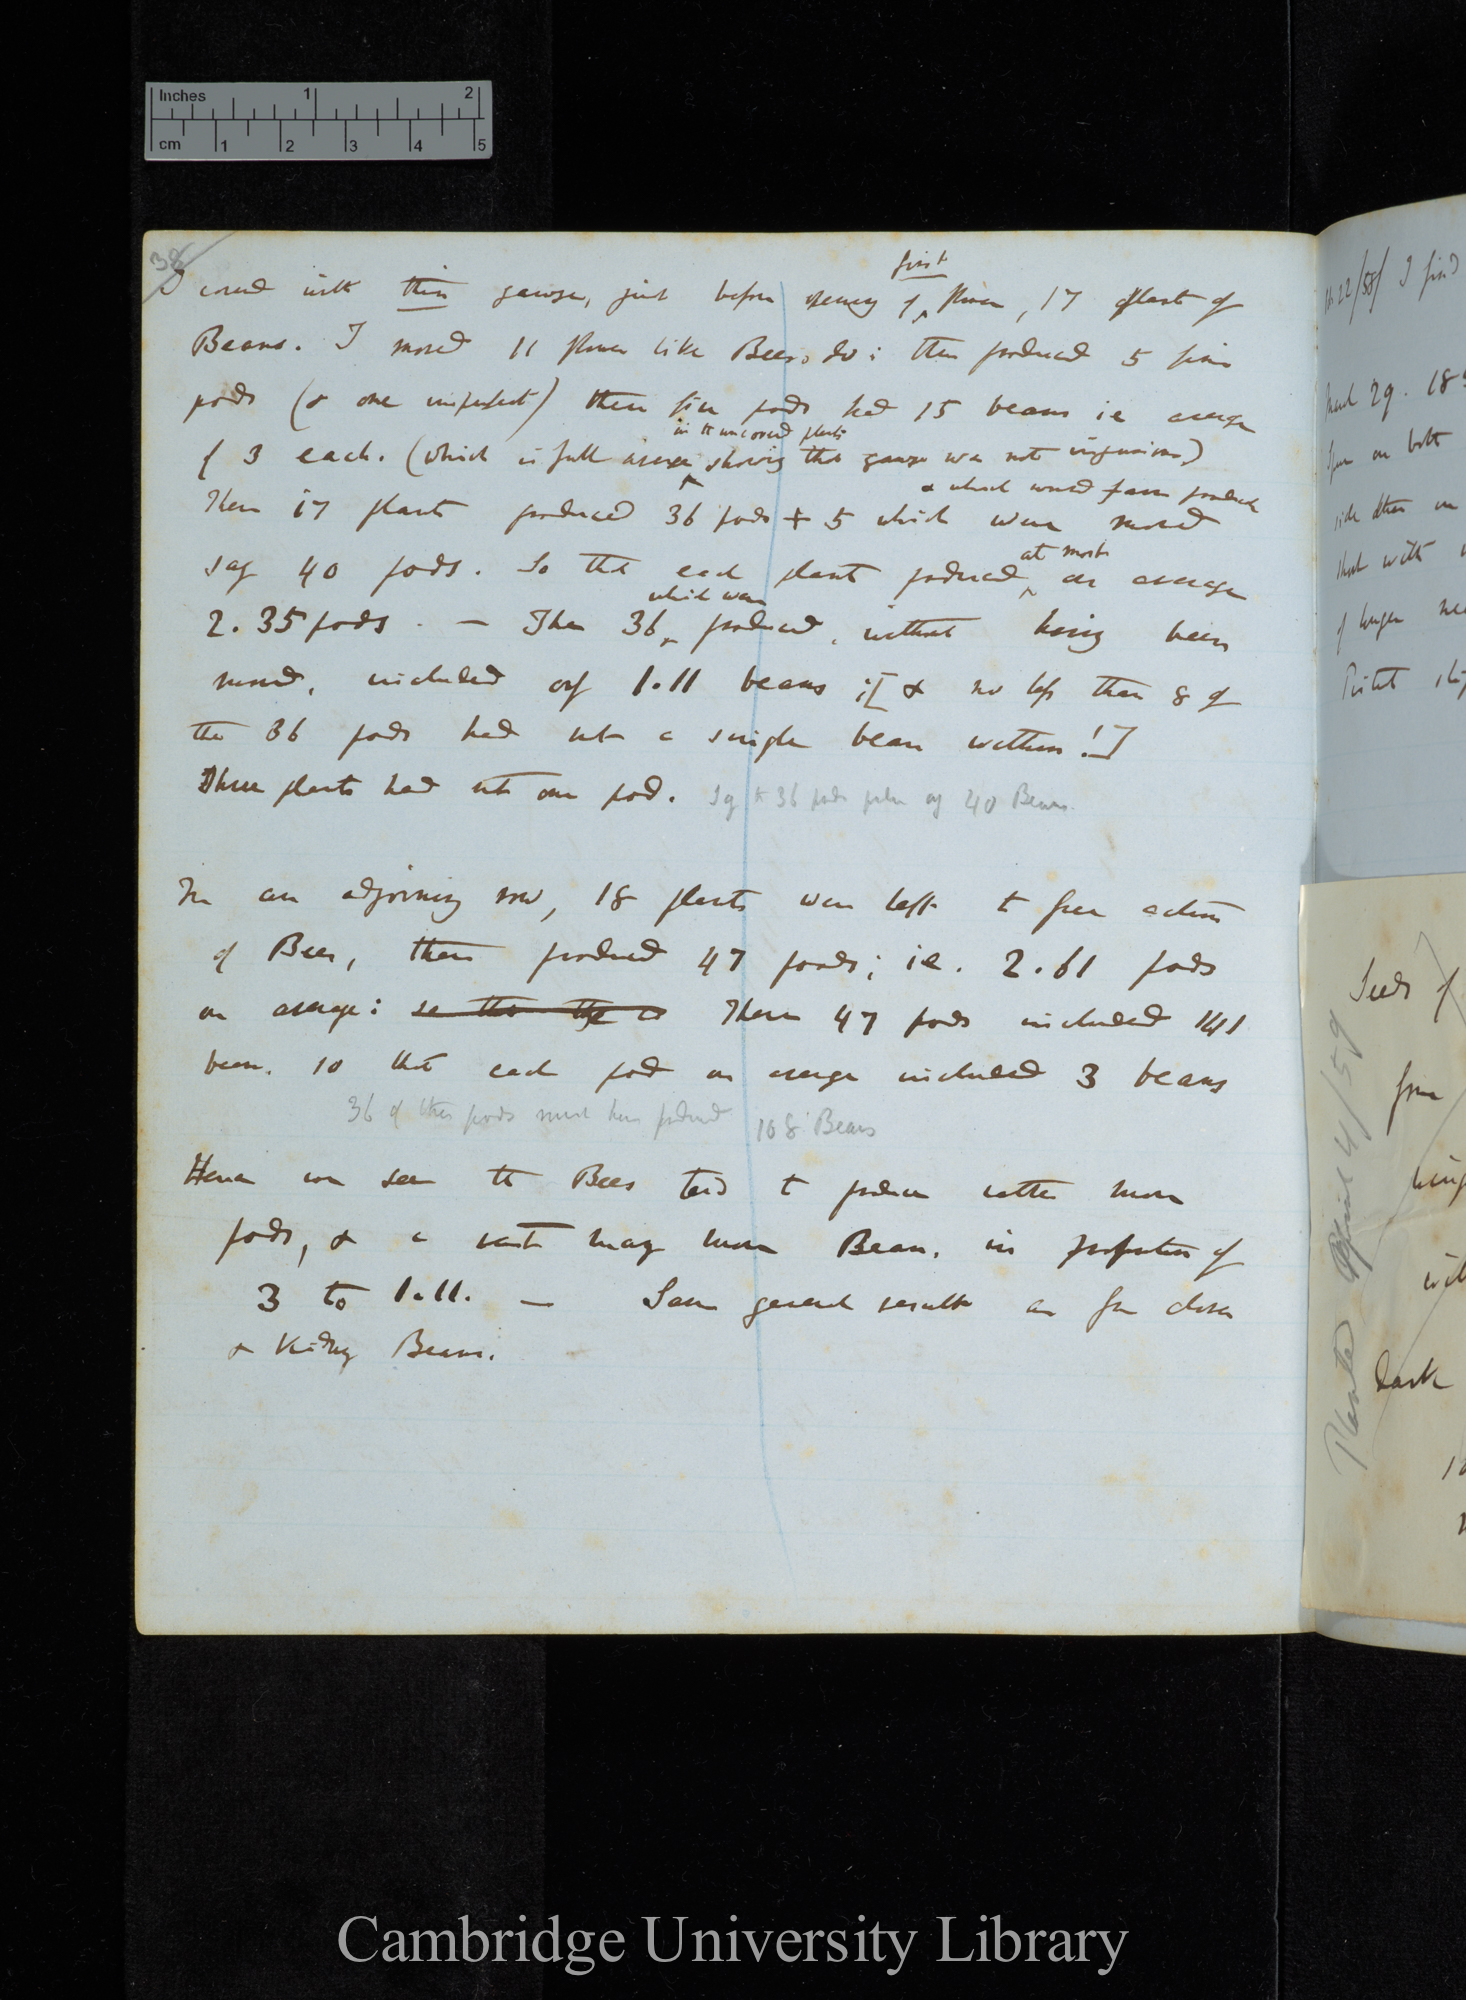 Inches 1 2
cm 1 2 3 4 5
38
first
I covered with thin gauze, just before opening of flower, 17 plants of
Beans. I moved 11 flowers like Bees do: these produced 5 fine
pods (& one imperfect) these fine pods had 15 beans ie average
in the uncovered plants
of 3 each. (which is full average showing that gauze was not injurious)
& which would have produced
These 17 plants produced 36 pods + 5 which were moved
at most
say 40 pods. So that each plant produced on average
which were
2.35 pods. — These 36 produced, without having been
moved, included only 1.11 beans ;[ & no less than 8 of
the 36 pods had not a single bean within!]
Three plants had not one pod. Say the 36 pods only 40 Beans.
In an adjoining row, 18 plants were left to free action
of Bees, these produced 47 pods; ie. 2.61 pods
on average: so that the These 47 pods included 141
beans. so that each pod on average included 3 beans
36 of these pods must have produced 108 Beans
Hence we see the Bees tend to produce rather more
pods, & a vast many more Beans. in proportion of
3 to 1.11. — Same general result as for clover
& Kidney Beans.
22/58/ I find
March 29. 18
on both
side than on
that with
of longer
Pistil
Seeds of
from
dark
Planted April 4/59
Cambridge University Library